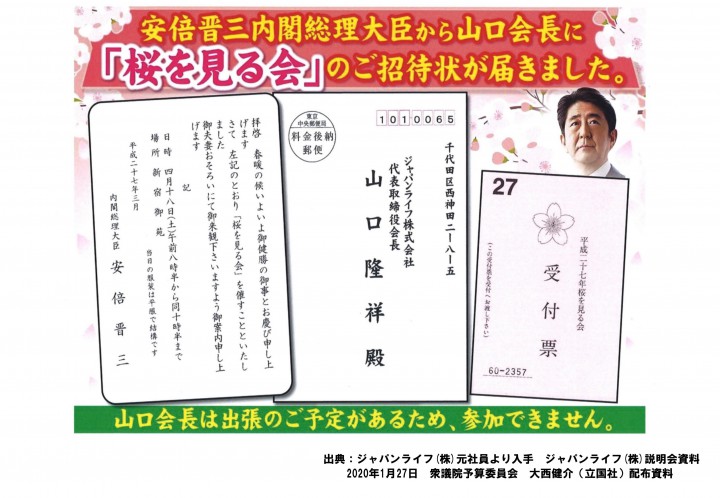 安倍晋三内閣総理大臣から山口会長に
「桜を見る会」のご招待状が届きました。
拝啓　春暖の候いよいよ御健勝の御事とお慶び申し上
げます
さて　左記のとおり「桜を見る会」を催すことといたし
ました
御夫妻おそろいにて御来観下さいますよう御案内申し上
げます
記
日時　四月十八日(土)午前八時半から同十時半まで
場所　新宿御苑
当日の服装は平服で結構です
平成二十七年三月
内閣総理大臣　安倍晋三
東京
中央郵便局
料金後納
郵便
1010065
千代田区西神田二ー八ー五
ジャパンライフ株式会社
代表取締役会長
山口隆祥殿
27
平成二十七年桜を見る会
受付票
(この受付票を受付へお渡し下さい)
60-2357
山口会長は出張のご予定があるため、参加できません。
出典：ジャパンライフ(株)元社員より入手　ジャパンライフ(株)説明会資料
2020年1月27日　衆議院予算委員会　大西健介（立国社）配布資料